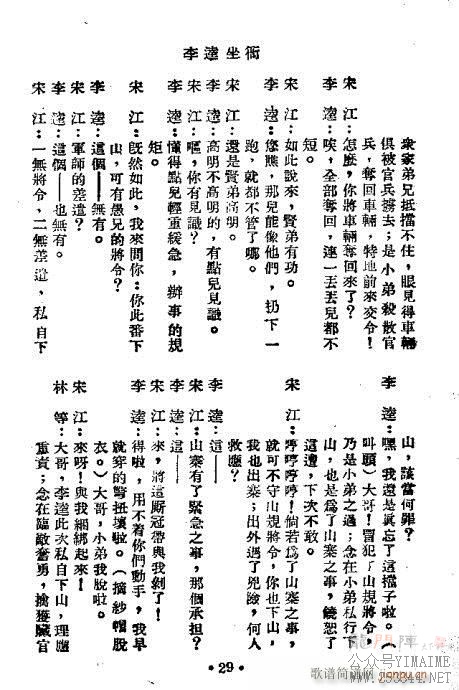 李逵坐衙
衆家弟兄抵擋不住，眼見得車輛
俱被官兵擄去；是小弟殺散官
兵，奪回車輛，特地前來交令！
宋　江：怎麽，你將車輛奪回來了？
李　逵：唉，全部奪回，連一丟丟兒都不
短。
宋　江：如此說來，賢弟有功。
李　逵：您瞧，那兒能像他們，扔下一
跑，就都不管了哪。
宋　江：還是賢弟高明。
李　逵：高明不高明的，有點兒見識。
宋　江：嘔，你有見識？
李　逵：懂得點兒輕重緩急，辦事的規
矩。
宋　江：旣然如此，我來問你：你此番下
山，可有愚兄的將令？
李　逵：這個——無有。
宋　江：軍師的差遣？
李　逵：這個——也無有。
宋　江：一無將令，二無差遣，私自下
山，該當何罪？
李　逵：嘿，我還是眞忘了這擋子啦。（
叫頭）大哥！冒犯了山規將令，
乃是小弟之過；念在小弟私行下
山，也是爲了山寨之事，饒恕了
這遭，下次不敢。
宋　江：哼哼哼哼！倘若爲了山寨之事，
就可不守山規將令，你也下山，
我也出寨；出外遇了兇險，何人
救應？
李　逵：這——
宋　江：山寨有了緊急之事，那個承担？
李　逵：這——
宋　江：來，將這厮冠帶與我剝了！
李　逵：得啦，用不着你們動手，我早
就穿的彆扭壞啦。（摘紗帽脫
衣。）大哥，小弟我脫啦。
宋　江：來呀！與我綑綁起來！
林　等：大哥，李逵此次私自下山，理應
重責；念在臨敵奮勇，擒獲贓官
·29·
龍門陣
歌谱简谱网
公众号YIMAIME